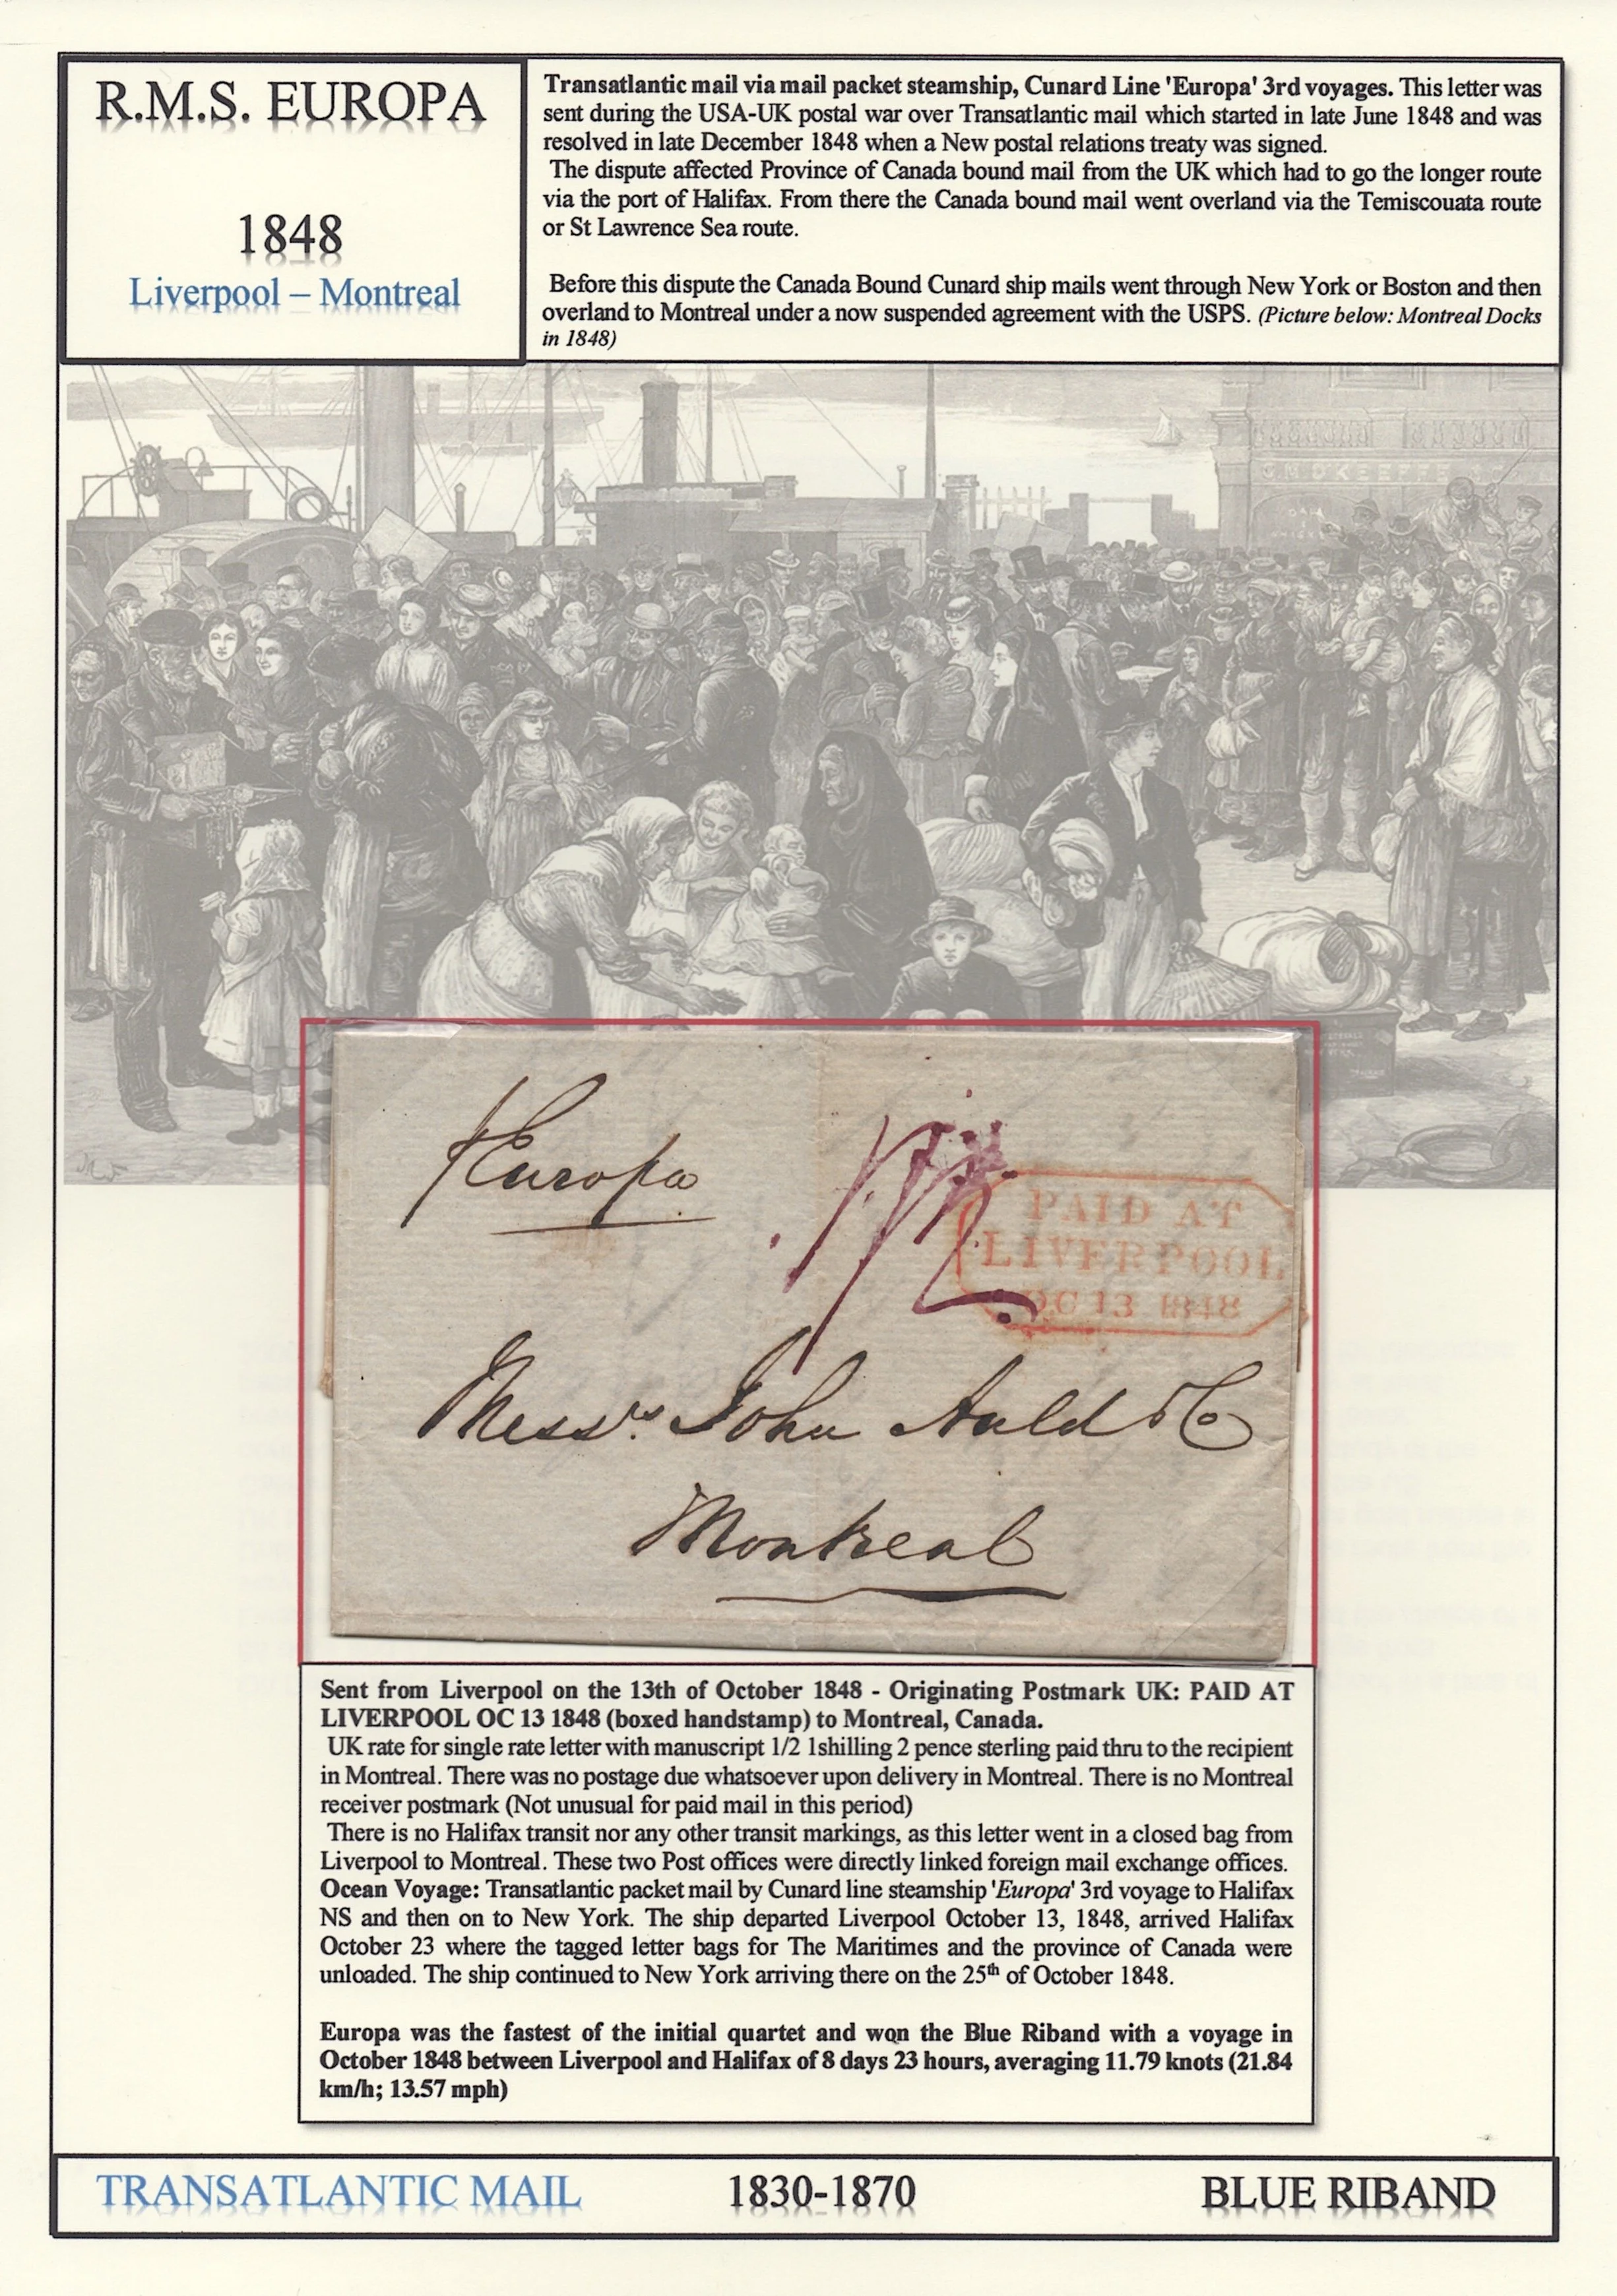 R.M.S. EUROPA
1848
Liverpool – Montreal
Transatlantic mail via mail packet steamship, Cunard Line 'Europa' 3rd voyages. This letter was
sent during the USA-UK postal war over Transatlantic mail which started in late June 1848 and was
resolved in late December 1848 when a New postal relations treaty was signed.
The dispute affected Province of Canada bound mail from the UK which had to go the longer route
via the port of Halifax. From there the Canada bound mail went overland via the Temiscouata route
or St Lawrence Sea route.
Before this dispute the Canada Bound Cunard ship mails went through New York or Boston and then
overland to Montreal under a now suspended agreement with the USPS. (Picture below: Montreal Docks
in 1848)
Europa
1/2
PAID AT
LIVERPOOL
OC 13 1848
Messrs. John Auld & Co
Montreal
Sent from Liverpool on the 13th of October 1848 - Originating Postmark UK: PAID AT
LIVERPOOL OC 13 1848 (boxed handstamp) to Montreal, Canada.
UK rate for single rate letter with manuscript 1/2 1shilling 2 pence sterling paid thru to the recipient
in Montreal. There was no postage due whatsoever upon delivery in Montreal. There is no Montreal
receiver postmark (Not unusual for paid mail in this period)
There is no Halifax transit nor any other transit markings, as this letter went in a closed bag from
Liverpool to Montreal. These two Post offices were directly linked foreign mail exchange offices.
Ocean Voyage: Transatlantic packet mail by Cunard line steamship 'Europa' 3rd voyage to Halifax
NS and then on to New York. The ship departed Liverpool October 13, 1848, arrived Halifax
October 23 where the tagged letter bags for The Maritimes and the province of Canada were
unloaded. The ship continued to New York arriving there on the 25th of October 1848.
Europa was the fastest of the initial quartet and won the Blue Riband with a voyage in
October 1848 between Liverpool and Halifax of 8 days 23 hours, averaging 11.79 knots (21.84
km/h; 13.57 mph)
TRANSATLANTIC MAIL
1830-1870
BLUE RIBAND